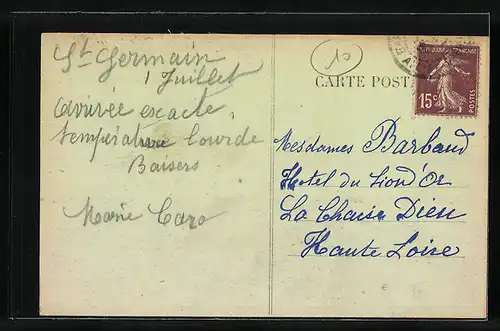 St Germain
1 Juillet
arrivée exacte,
température lourde
Baisers
Marie Caro
10
CARTE POST
RÉPUBLIQUE FRANÇAISE
15c
POSTES
Mesdames Barbaud
Hotel du Lion d'Or
La Chaise Dieu
Haute Loire